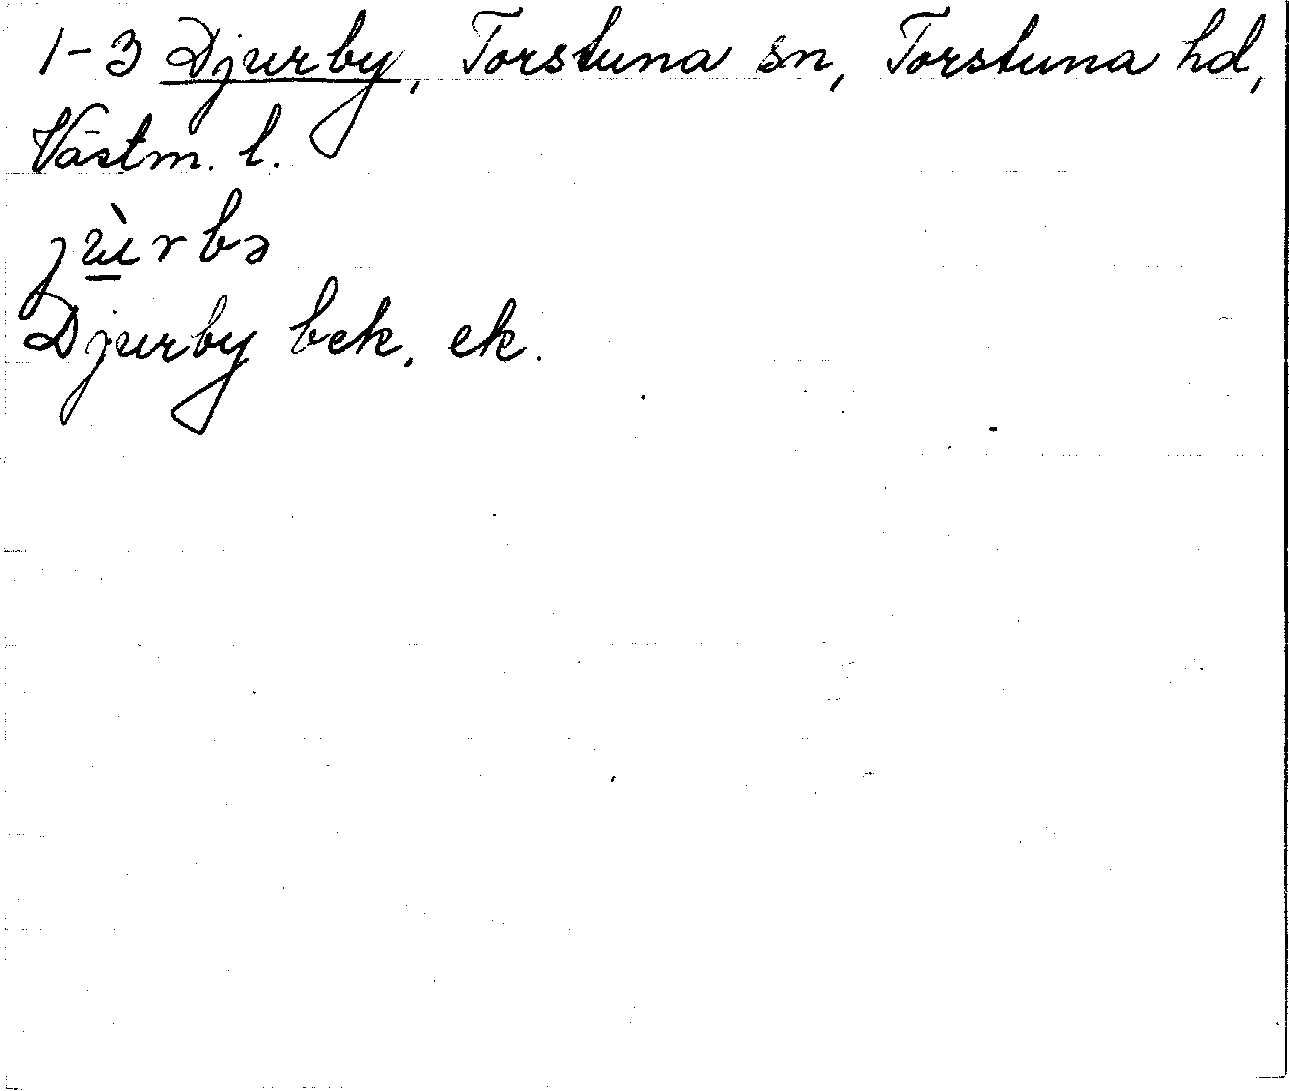 1-3 Djurby, Torstuna sn, Torstuna hd,
Västm. l.
jùrbə
Djurby bek. ek.